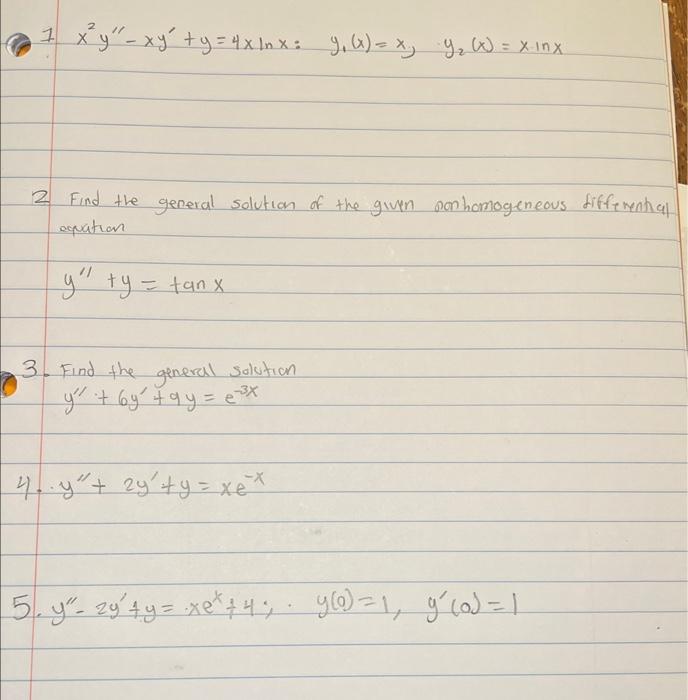 1 x²y″ - xy′ + y = 4x ln x: y₁(x) = x, y₂(x) = x·lnx
2 Find the general solution of the given nonhomogeneous differential
equation
y″ + y = tan x
3. Find the general solution
y″ + 6y′ + 9y = e⁻³ˣ
4. y″ + 2y′ + y = xe⁻ˣ
5. y″ - 2y′ + y = xeˣ + 4; y(0) = 1, y′(0) = 1